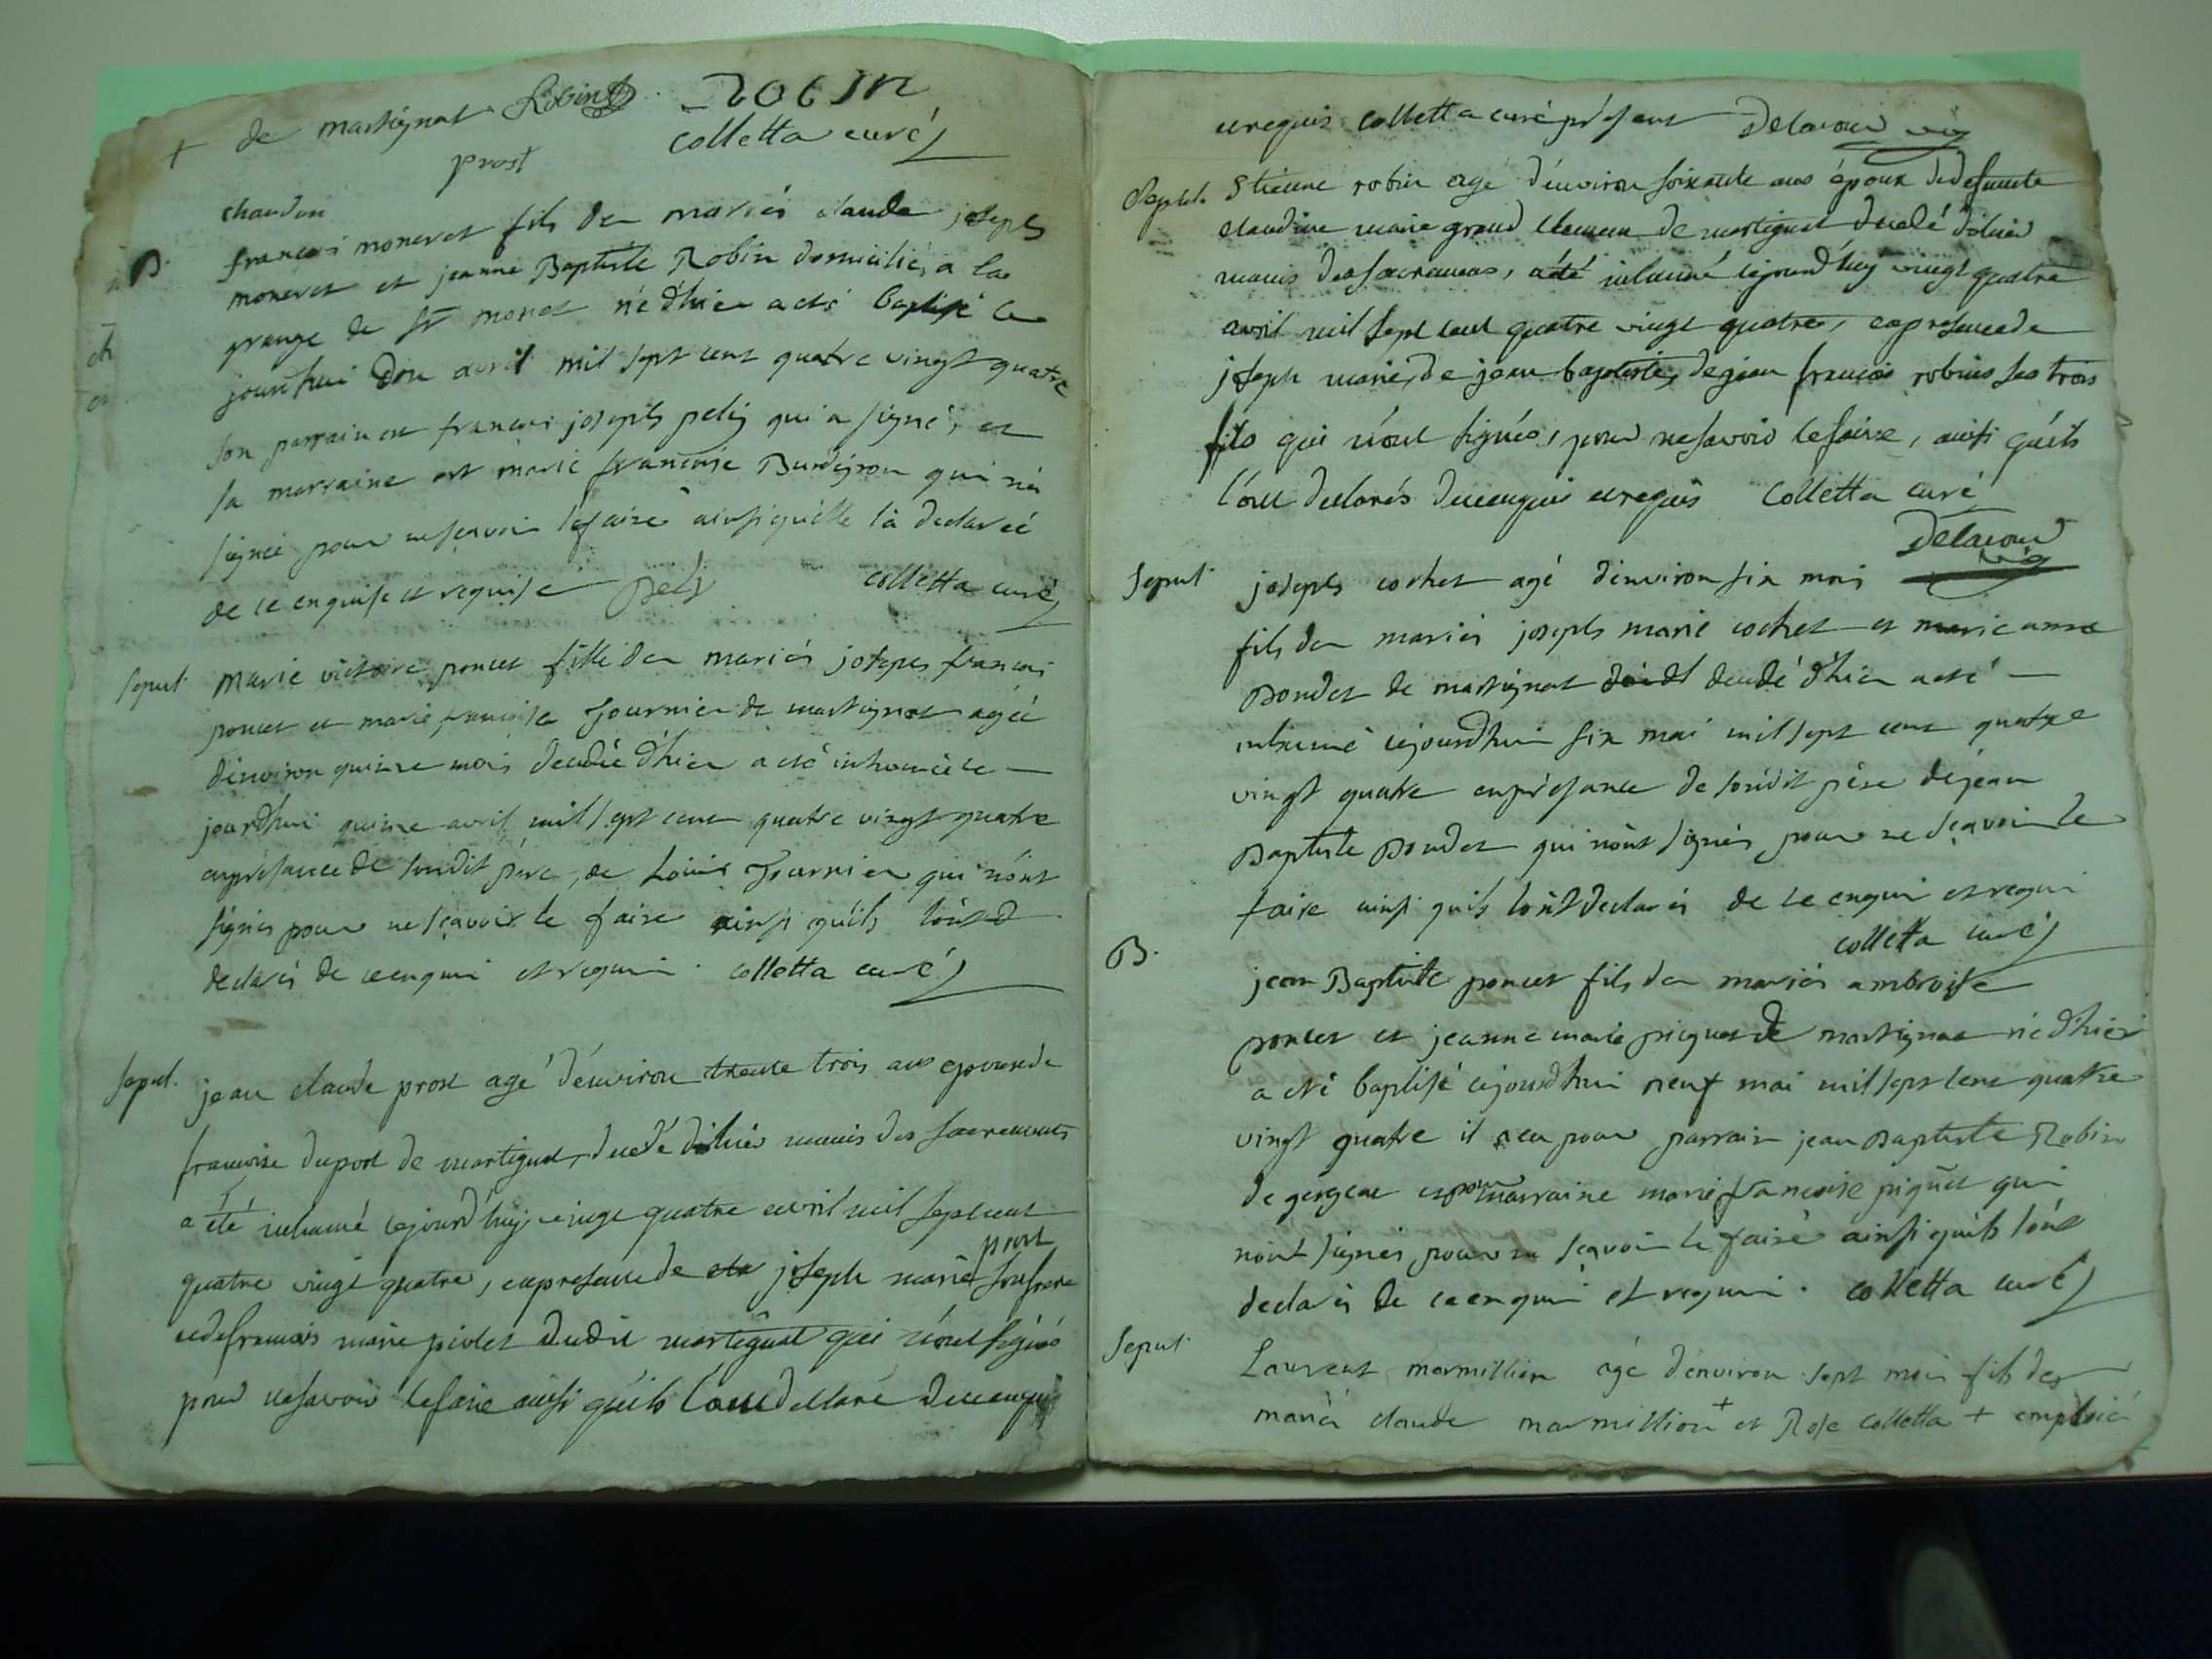 + de martignat Robin Robin
prost colletta curé
chandon
B. françois moneret fils des mariés claude joseph
moneret et jeanne Baptiste Robin domicilié a la
grange de st monet né d'hier a eté baptisé ce
jourd'hui avril mil sept cent quatre vingt quatre
son parrain est françois joseph pely qui a signé, et
sa marraine est marie françoise qui n'a
signée pour ne sçavoir le faire ainsi qu'elle l'a declareé
de ce enquise et requise Pely colletta curé
sepul. Marie victoire poncet fille des mariés joseph françois
poncet et marie françoise fournier de martignat agée
d'environ quinze mois decedée d'hier a eté inhumée ce
jourd'hui quinze avril mil sept cent quatre vingt quatre
en présence de sondit père, de Louis fournier qui n'ont
signés pour ne sçavoir le faire ainsi qu'ils l'ont
declarés de ce enquis et requis. colletta curé
sepul. jean claude prost agé d'environ trente trois ans epoux de
francoise duport de martignat, decedé d'hier munis des sacrements
a été inhumé cejourd'huy vingt quatre avril mil sept cent
prost
quatre vingt quatre, en presence de joseph marie son frere
et de francois marie piolet dudit martignat qui n'ont signés
pour ne savoir le faire ainsi qu'ils l'ont declaré de ce enquis
et requis colletta curé présent Delacour vic
Sepul. Etienne robin agé d'environ soixante ans époux de defuncte
claudine marie grand clement de martignat decedé d'hier
munis des sacremens, a été inhumé cejourd'huy vingt quatre
avril mil sept cent quatre vingt quatre, en presence de
joseph marie, de jean baptiste, de jean francois robins ses trois
fils qui n'ont signés, pour ne savoir le faire, ainsi qu'ils
l'ont declarés de ce enquis et requis Colletta curé
Delacour vic
sepul. joseph cochet agé d'environ six mois
fils des mariés joseph marie cochet et marie anne
Bondet de martignat decedé d'hier a eté
inhumé cejourd'hui six mai mil sept cent quatre
vingt quatre en présance de sondit père de jean
Baptiste Bondet qui n'ont signés pour ne sçavoir le
faire ainsi qu'ils l'ont declarés de ce enquis et requis
colletta curé
B. jean Baptiste poncet fils des mariés ambroise
poncet et jeanne marie piquet de martignat né d'hier
a eté baptisé cejourd'hui neuf mai mil sept cent quatre
vingt quatre il a eu pour parrain jean Baptiste Robin
de et pour marraine marie françoise piquet qui
n'ont signés pour ne sçavoir le faire ainsi qu'ils l'ont
declarés de ce enquis et requis. colletta curé
sepul. Laurent marmillion agé d'environ sept mois fils des
mariés claude marmillion + et Rose colletta +